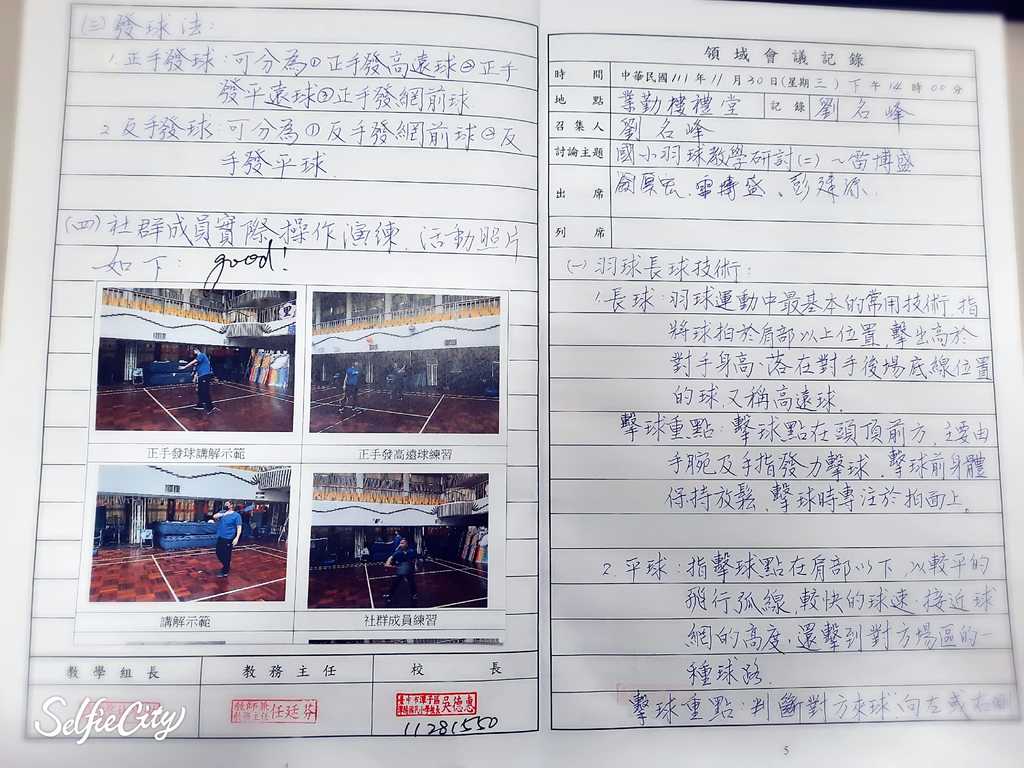 (三)發球法:
1.正手發球:可分為①正手發高遠球②正手
發平遠球③正手發網前球
2.反手發球:可分為①反手發網前球②反
手發平球.
(四)社群成員實際操作演練,活動照片
如下:
good!
正手發球講解示範
正手發高遠球練習
講解示範
社群成員練習
教學組長
教務主任
校長
教師兼
教務主任 任廷芬
臺中市潭子區
國民小學校長 吳德惠
11281550
SelfieCity
領域會議記錄
時間 中華民國 111 年 11 月 30 日(星期 三 ) 下 午 14 時 00 分
地點 業勤樓禮堂 記錄 劉名峰
召集人 劉名峰
討論主題 國小羽球教學研討(二)~雷博盛
出席 雷博盛、彭建源.
列席
(一)羽球長球技術:
1.長球:羽球運動中最基本的常用技術,指
將球拍於肩部以上位置,擊出高於
對手身高、落在對手後場底線位置
的球,又稱高遠球.
擊球重點:擊球點在頭頂前方,主要由
手腕及手指發力擊球,擊球前身體
保持放鬆,擊球時專注於拍面上.
2.平球:指擊球點在肩部以下,以較平的
飛行弧線,較快的球速,接近球
網的高度,還擊到對方場區的一
種球路.
擊球重點:判斷對方來球,向左或右
5